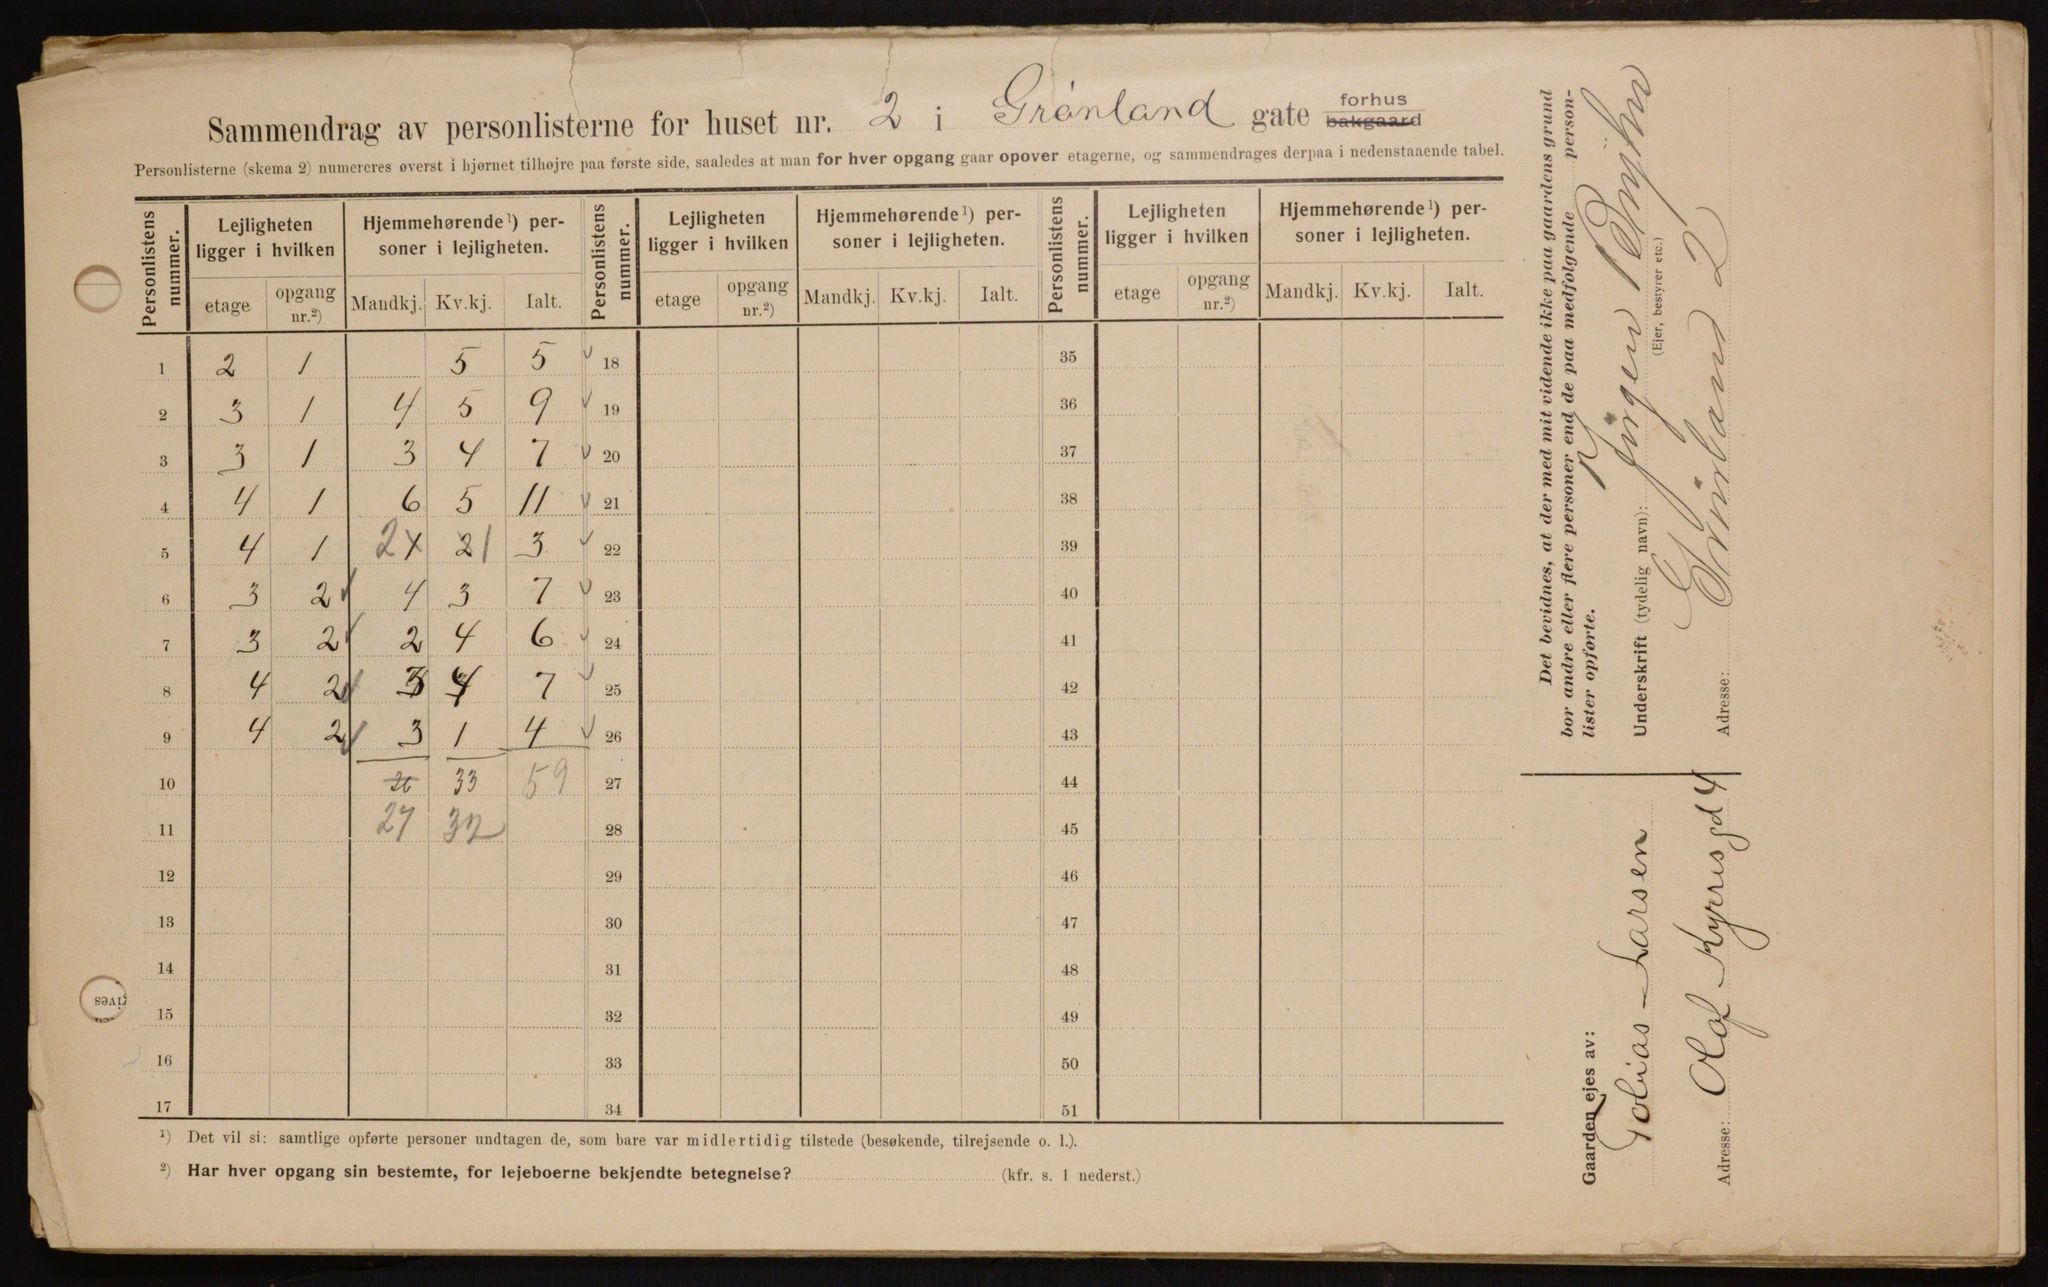 Sammendrag av personlisterne for huset nr. 2 i Grønland gate forhus bakgaard
Personlisterne (skema 2) numereres øverst i hjørnet tilhøjre paa første side, saaledes at man for hver opgang gaar opover etagerne, og sammendrages derpaa i nedenstaaende tabel.
Personlistens nummer. Lejligheten ligger i hvilken Hjemmehørende¹) personer i lejligheten. Personlistens nummer. Lejligheten ligger i hvilken Hjemmehørende¹) personer i lejligheten. Personlistens nummer. Lejligheten ligger i hvilken Hjemmehørende¹) personer i lejligheten.
etage opgang nr.²) Mandkj. Kv.kj. Ialt. etage opgang nr.²) Mandkj. Kv.kj. Ialt. etage opgang nr.²) Mandkj. Kv.kj. Ialt.
1 2 1 5 5 18 35
2 3 1 4 5 9 19 36
3 3 1 3 4 7 20 37
4 4 1 6 5 11 21 38
5 4 1 2 2 1 3 22 39
6 3 2 4 3 7 23 40
7 3 2 2 4 6 24 41
8 4 2 3 4 7 25 42
9 4 2 3 1 4 26 43
10 26 33 59 27 44
11 27 32 28 45
12 29 46
13 30 47
14 31 48
15 32 49
16 33 50
17 34 51
¹) Det vil si: samtlige opførte personer undtagen de, som bare var midlertidig tilstede (besøkende, tilrejsende o. l.).
²) Har hver opgang sin bestemte, for lejeboerne bekjendte betegnelse? (kfr. s. 1 nederst.)
Det bevidnes, at der med mit vidende ikke paa gaardens grund
bor andre eller flere personer end de paa medfølgende person-
lister opførte.
Underskrift (tydelig navn): Jörgen
(Ejer, bestyrer etc.)
Adresse: Grönland 2
Gaarden ejes av:
Tobias Larsen
Adresse: Olaf Kyrres gd 4
gives